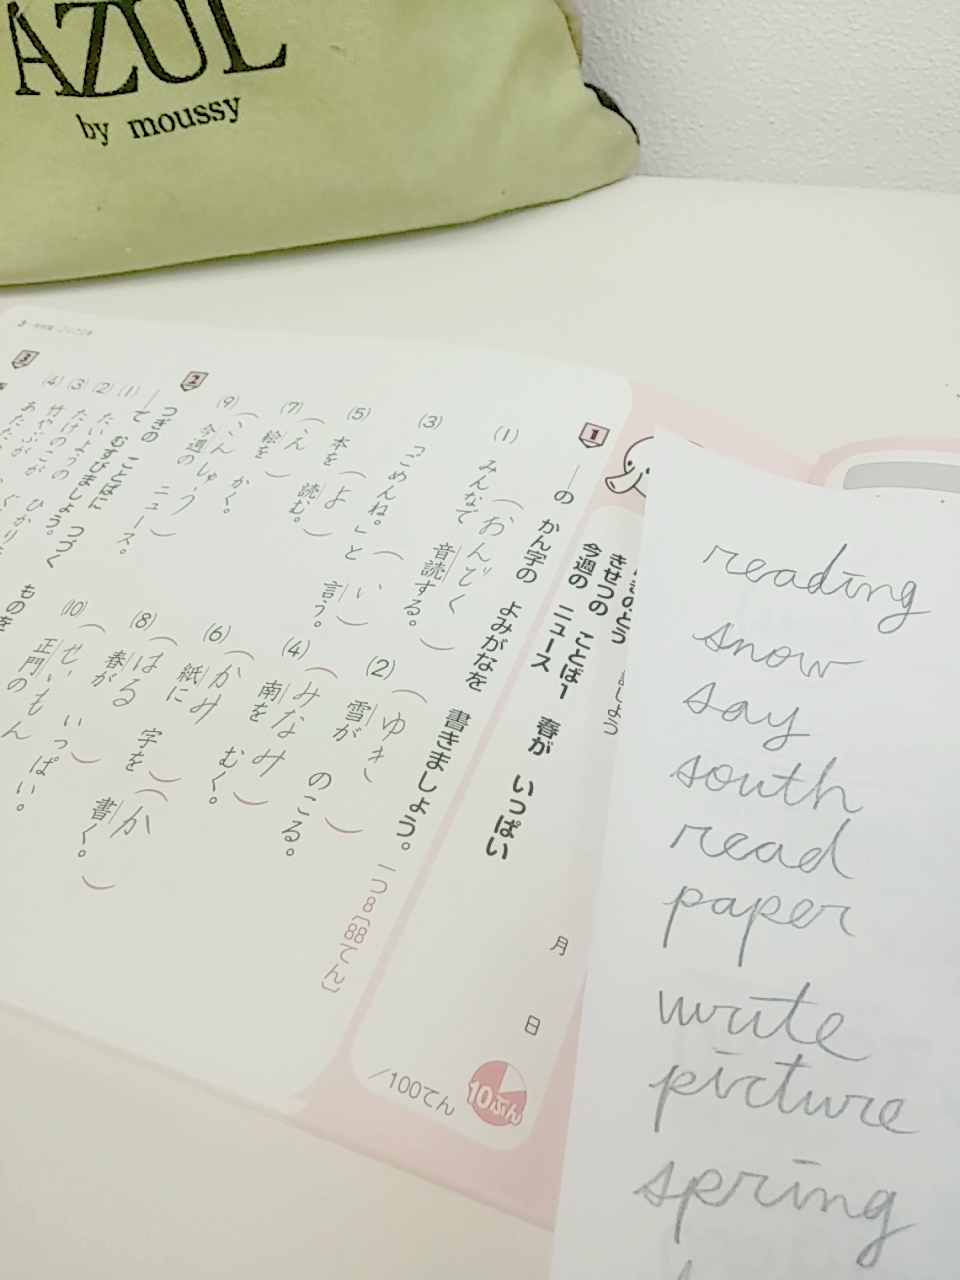 AZUL
by moussy
きせつの ことば1 春が いっぱい
今週の ニュース
月 日
10ぷん
/100てん
1
―の かん字の よみがなを 書きましょう。
一つ8〔88てん〕
(1)
おんどく
みんなで 音読する。
(2)
ゆき
雪が のこる。
(3)
い
「ごめんね。」と 言う。
(4)
みなみ
南を むく。
(5)
よ
本を 読む。
(6)
かみ
紙に 字を 書く。
か
(7)
絵を かく。
(8)
はる
春が いっぱい。
(9)
こんしゅう
今週の ニュース。
(10)
せいもん
正門の
2
つぎの ことばに つづく ものを
むすびましょう。
(1)
(2)
たいようの ひかりを
(3)
たけのこが
(4)
竹やぶが
3
reading
snow
say
south
read
paper
write
picture
spring